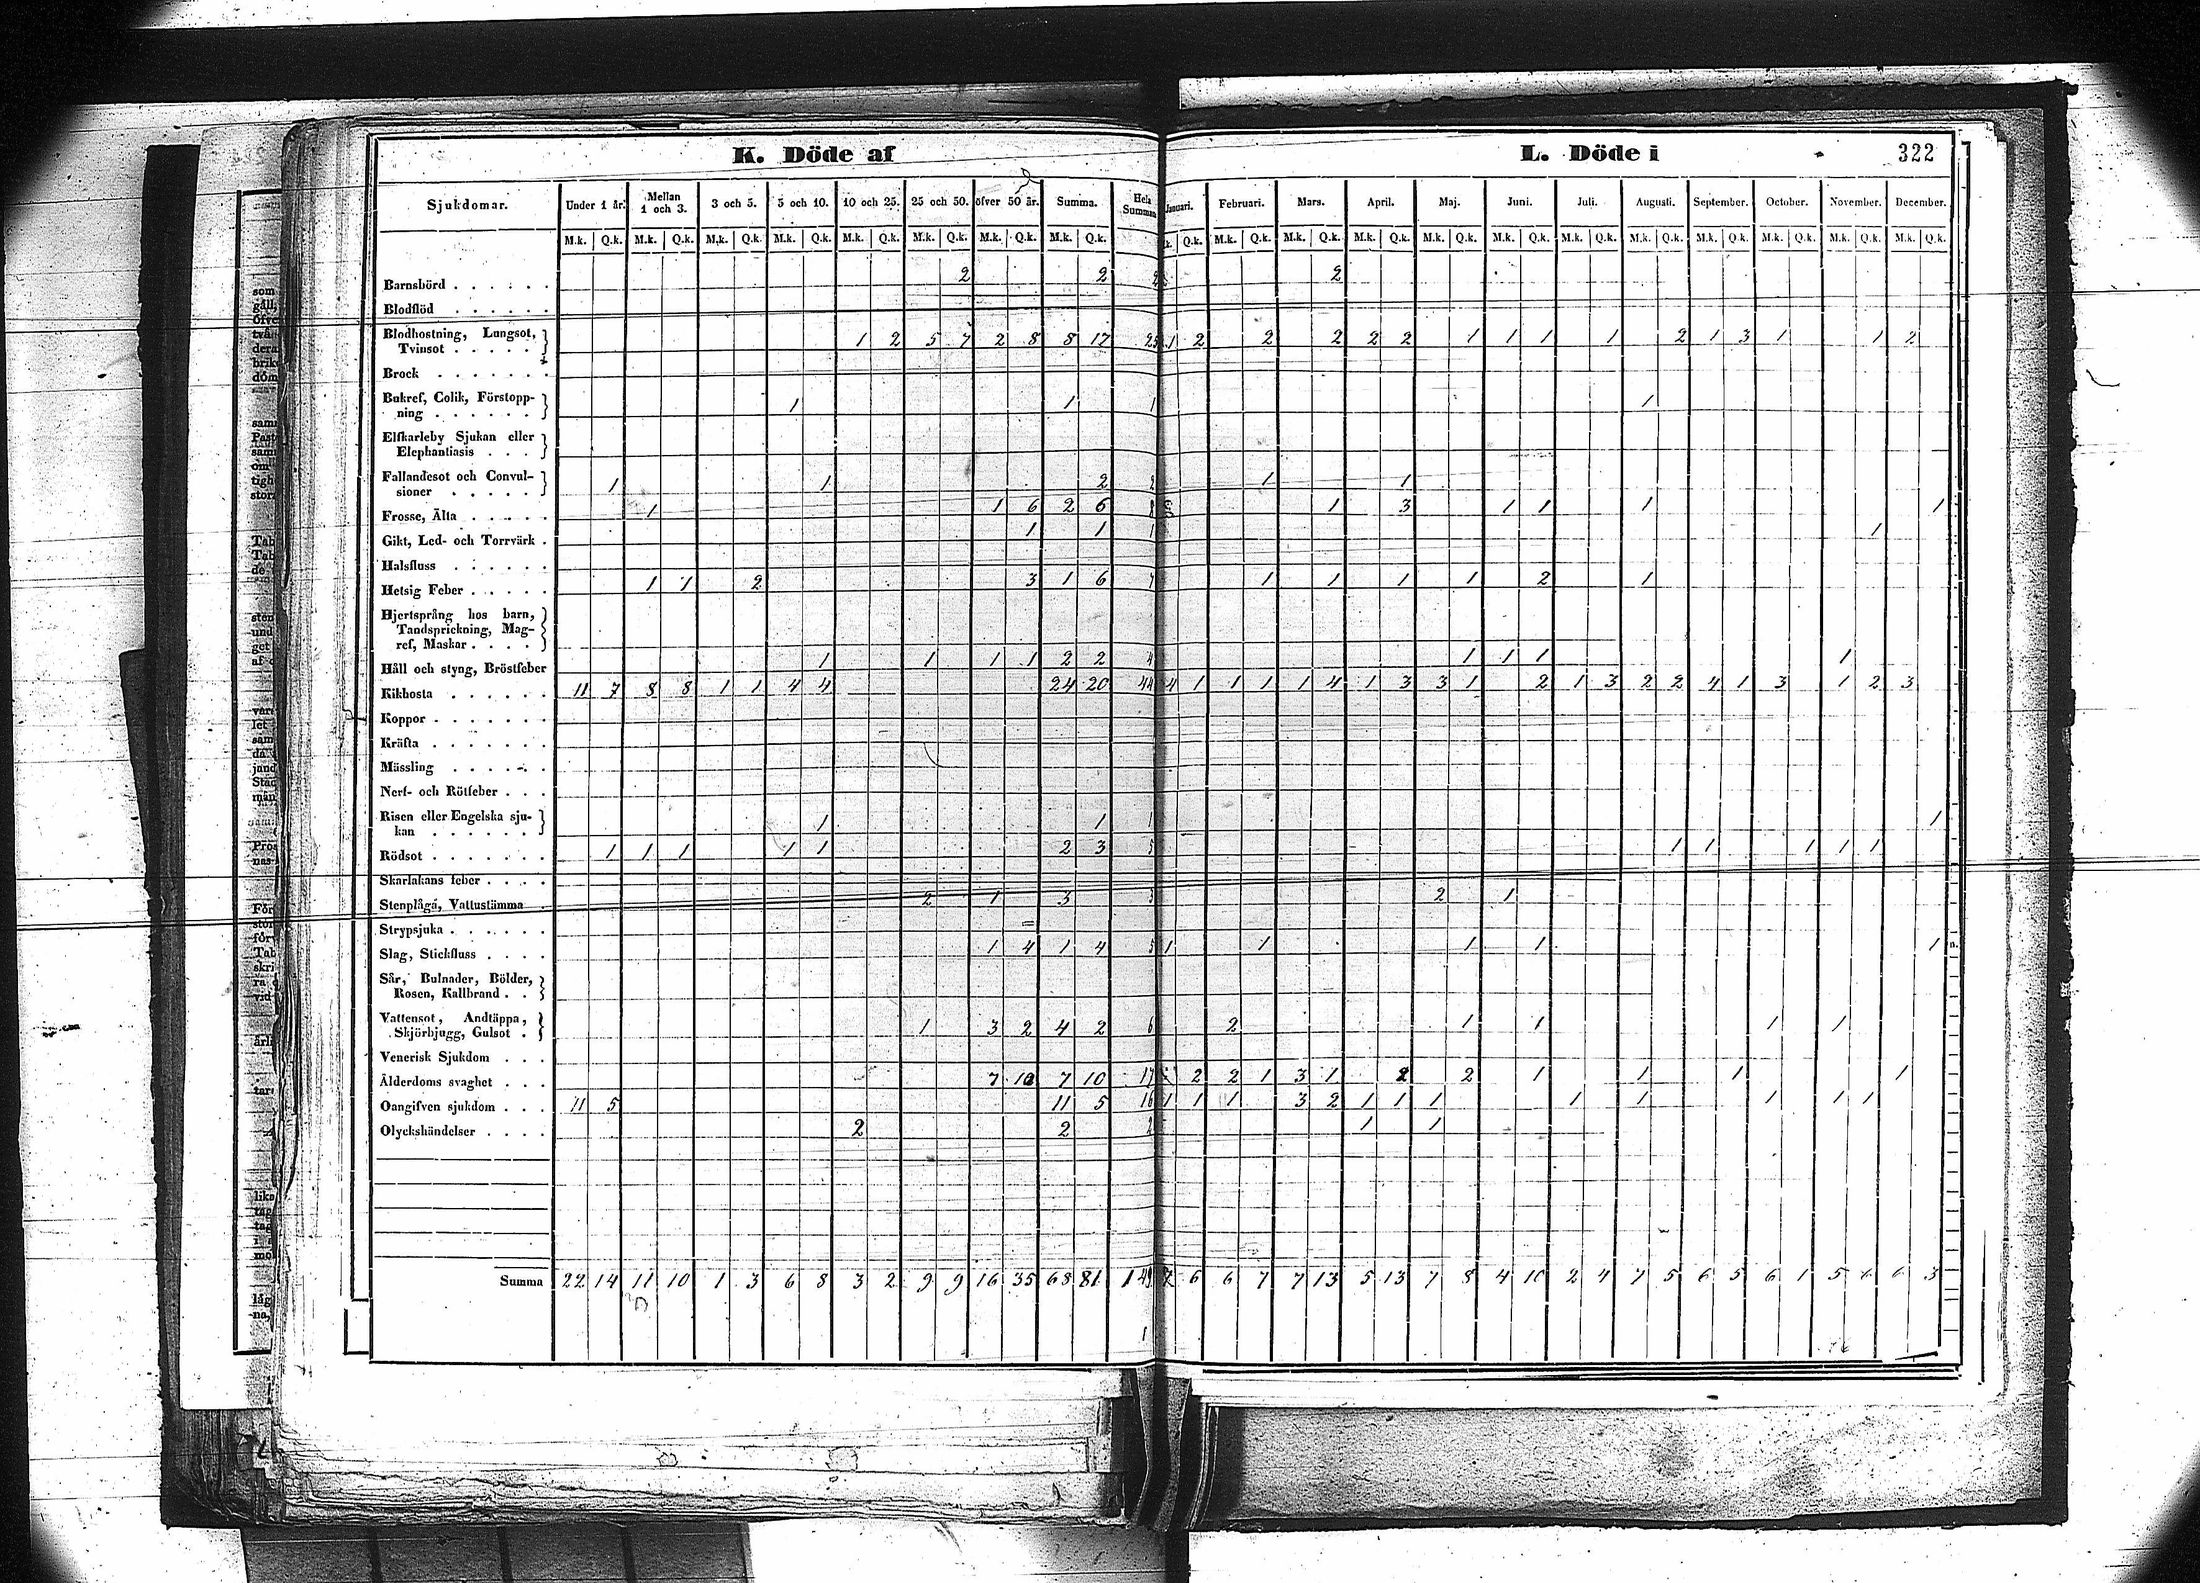 K. Döde af
L. Döde i
322
Sjukdomar. Under 1 år. Mellan 1 och 3. 3 och 5. 5 och 10. 10 och 25. 25 och 50. öfver 50 år. Summa. Hela Summan Januari. Februari. Mars. April. Maj. Juni. Juli. Augusti. September. October. November. December.
M.k. Q.k. M.k. Q.k. M.k. Q.k. M.k. Q.k. M.k. Q.k. M.k. Q.k. M.k. Q.k. M.k. Q.k. k. Q.k. M.k. Q.k. M.k. Q.k. M.k. Q.k. M.k. Q.k. M.k. Q.k. M.k. Q.k. M.k. Q.k. M.k. Q.k. M.k. Q.k. M.k. Q.k. M.k. Q.k.
Barnsbörd 2 2 2 2
Blodflöd
Blodhostning, Lungsot,
Tvinsot 1 2 5 7 2 8 8 17 25 1 2 2 2 2 2 1 1 1 1 2 1 3 1 1 2
Brock
Bukref, Colik, Förstopp-
ning 1 1 1 1
Elfkarleby Sjukan eller
Elephantiasis
Fallandesot och Convul-
sioner 1 1 2 2 1 1
Frosse, Älta 1 1 6 2 6 8 1 3 1 1 1 1
Gikt, Led- och Torrvärk 1 1 1 1
Halsfluss
Hetsig Feber 1 1 2 3 1 6 7 1 1 1 1 2 1
Hjertsprång hos barn,
Tandsprickning, Mag-
ref, Maskar
Håll och styng, Bröstfeber 1 1 1 1 2 2 4 1 1 1 1
Kikhosta 11 7 8 8 1 1 4 4 24 20 44 4 1 1 1 1 4 1 3 3 1 2 1 3 2 2 4 1 3 1 2 3
Koppor
Kräfta
Mässling
Nerf- och Rötfeber
Risen eller Engelska sju-
kan 1 1 1 1
Rödsot 1 1 1 1 1 2 3 5 1 1 1 1 1
Skarlakans feber
Stenplåga, Vattustämma 2 1 3 3 2 1
Strypsjuka
Slag, Stickfluss 1 4 1 4 5 1 1 1 1 1
Sår, Bulnader, Bölder,
Rosen, Kallbrand
Vattensot, Andtäppa,
Skjörbjugg, Gulsot 1 3 2 4 2 6 2 1 1 1 1
Venerisk Sjukdom
Ålderdoms svaghet 7 10 7 10 17 2 2 1 3 1 2 2 1 1 1 1
Oangifven sjukdom 11 5 11 5 16 1 1 1 3 2 1 1 1 1 1 1 1 1
Olyckshändelser 2 2 2 1 1
Summa 22 14 11 10 1 3 6 8 3 2 9 9 16 35 68 81 149 7 6 6 7 7 13 5 13 7 8 4 10 2 4 7 5 6 5 6 1 5 6 6 3